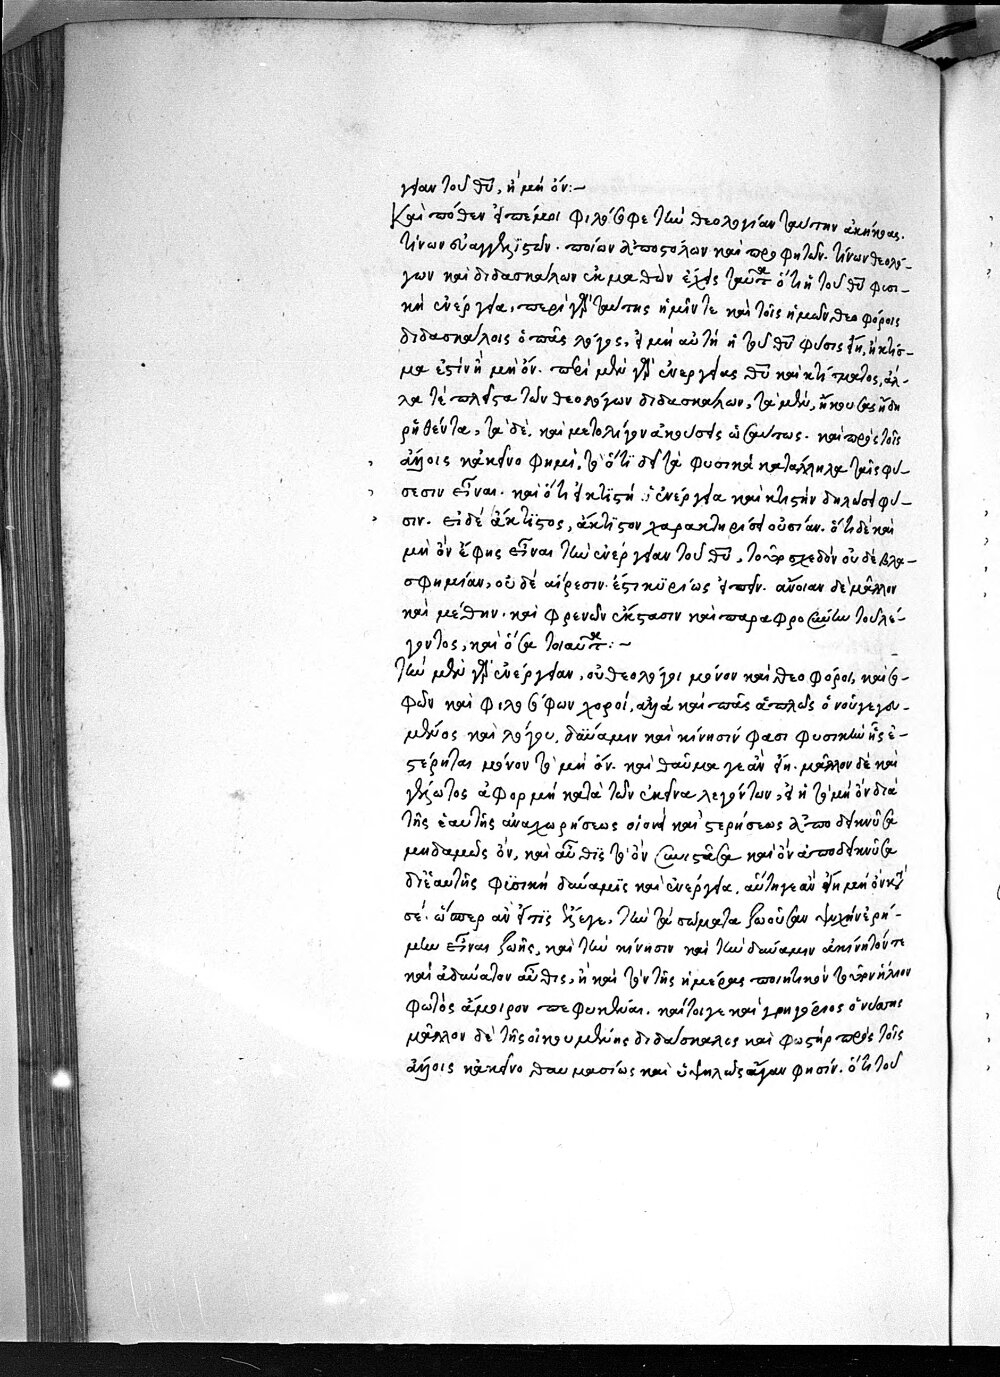 γειαν τοῦ θῦ, ἢ μὴ ὄν:~
Καὶ πόθεν εἰπέ μοι φιλόσοφε τὴν θεολογίαν ταύτην ἀκήκοας.
τίνων εὐαγγελιστῶν. ποίων ἀποστόλων καὶ προφητῶν. τίνων θεολό-
γων καὶ διδασκάλων ἐκμαθὼν ἔχεις ὅτι ἡ τοῦ θῦ φυσι-
κὴ ἐνέργεια, περὶ γὰρ ταύτης ἡμῖν τε καὶ τοῖς ἡμῶν θεοφόροις
διδασκάλοις ὁ πᾶς λόγος, εἰ μὴ αὐτὴ ἡ τοῦ θῦ φύσις εἴη, ἢ κτίσ-
μα ἐστὶν ἢ μὴ ὄν. περὶ μὲν γὰρ ἐνεργείας θῦ καὶ κτίσματος, ἀλ-
λα τε πλεῖστα τῶν θεολόγων διδασκάλων, τὰ μὲν, ἤκουσας ἤδη
ῥηθέντα, τὰ δὲ, καὶ μετολίγον ἀκούσεις ὡσαύτως. καὶ πρὸς τοῖς
ἄλλοις κἀκεῖνο φημὶ, τὸ ὅτι δεῖ τὰ φυσικὰ κατάλληλα ταῖς φύ-
σεσιν εἶναι. καὶ ὅτι εἰ κτιστὴ ἡ ἐνέργεια καὶ κτιστὴν δηλώσει φύ-
σιν. εἰ δὲ ἄκτιστος, ἄκτιστον χαρακτηρίσει οὐσίαν. ὅτι δὲ καὶ
μὴ ὂν ἔφης εἶναι τὴν ἐνέργειαν τοῦ θῦ, σχεδὸν οὐδὲ βλα-
σφημίαν, οὐδὲ αἵρεσιν ἔστι κυρίως εἰπεῖν. ἄνοιαν δὲ μᾶλλον
καὶ μέθην. καὶ φρενῶν ἔκστασιν καὶ παραφροσύνην τοῦ λέ-
γοντος, καὶ ὅσα :~
Τὴν μὲν γὰρ ἐνέργειαν, οὐ θεολόγοι μόνον καὶ θεοφόροι, καὶ σο-
φῶν καὶ φιλοσόφων χοροὶ, ἀλλὰ καὶ πᾶς ἁπλῶς ὁ νοῦ γεγευ-
μένος καὶ λόγου, δύναμιν καὶ κίνησίν φασι φυσικὴν ἧς ἐ-
στέρηται μόνον τὸ μὴ ὄν. καὶ θαῦμα γε ἂν εἴη. μᾶλλον δὲ καὶ
γέλωτος ἀφορμὴ κατὰ τῶν ἐκεῖνα λεγόντων, εἰ ἡ τὸ μὴ ὂν διὰ
τῆς ἑαυτῆς ἀναχωρήσεως οἱονεὶ καὶ στερήσεως ἀποδεικνῦσα
μηδαμῶς ὂν, καὶ αὖθις τὸ ὂν συνιστῶσα καὶ ὂν ἀποδεικνῦσα
δι' ἑαυτῆς φυσικὴ δύναμις καὶ ἐνέργεια, αὕτη γε ἂν εἴη μὴ ὂν κατὰ
σέ. ὥσπερ ἂν εἴ τις ἔλεγε, τὴν τὰ σώματα ζωοῦσαν ψυχὴν ἐρή-
μην εἶναι ζωῆς, καὶ τὴν κίνησιν καὶ τὴν δύναμιν ἀκίνητόν τε
καὶ ἀδύνατον αὖθις, ἢ καὶ τὸν τῆς ἡμέρας ποιητικὸν τουτονὶ ἥλιον
φωτὸς ἄμοιρον πεφυκέναι. καίτοιγε καὶ γρηγόριος ὁ νύσσης
μᾶλλον δὲ τῆς οἰκουμένης διδάσκαλος καὶ φωστὴρ πρὸς τοῖς
ἄλλοις κἀκεῖνο θαυμασίως καὶ ὑψηλῶς ἄγαν φησίν. ὅτι τοῦ